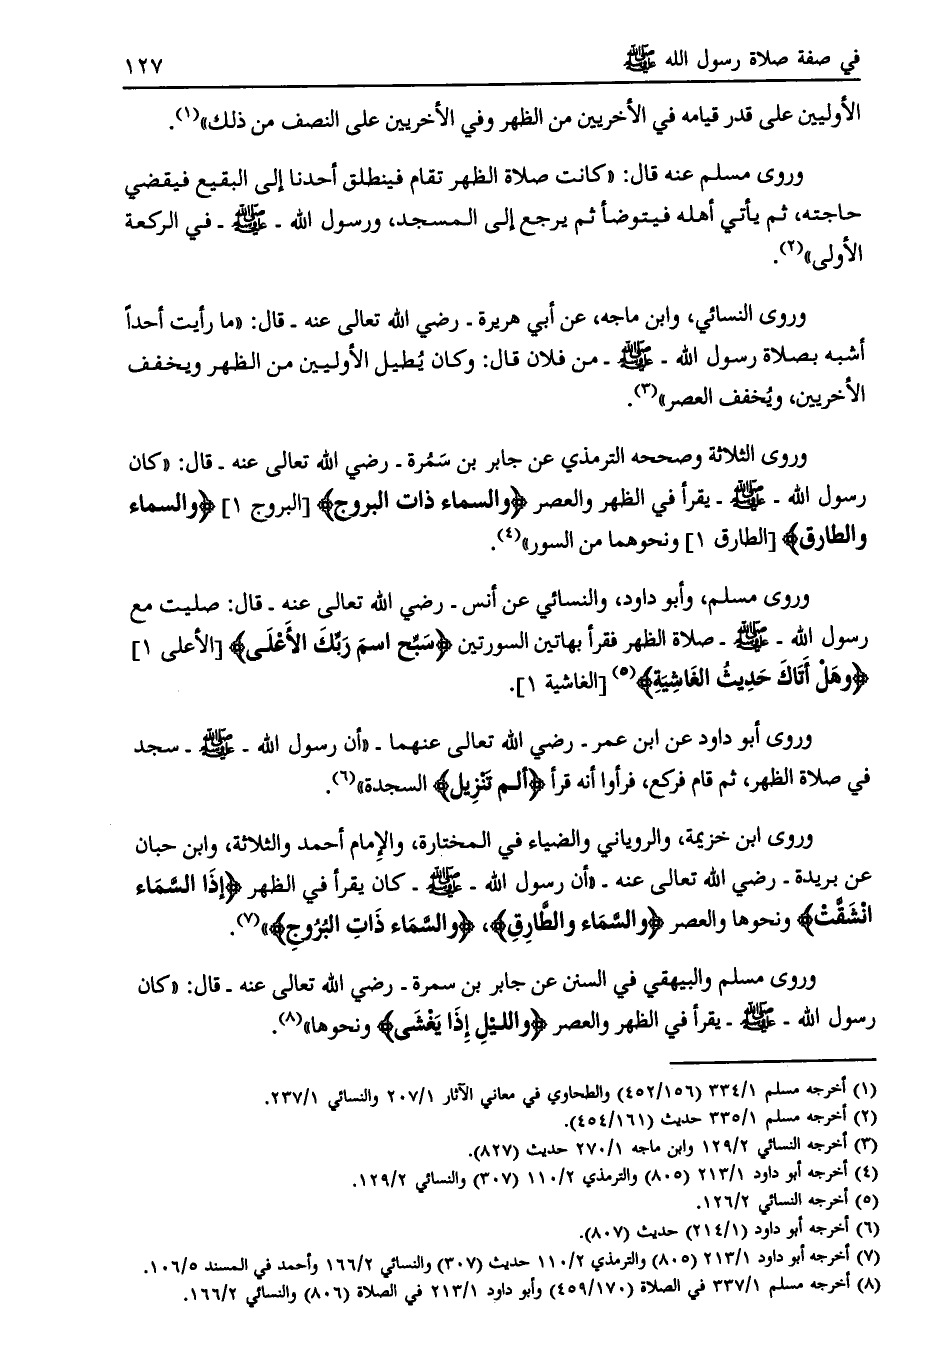 في صفة صلاة رسول الله ﷺ ١٢٧
الأوليين على قدر قيامه في الأخريين من الظهر وفي الأخريين على النصف من ذلك»(١).
وروى مسلم عنه قال: «كانت صلاة الظهر تقام فينطلق أحدنا إلى البقيع فيقضي
حاجته، ثم يأتي أهله فيتوضأ ثم يرجع إلى المسجد، ورسول الله ـ ﷺ ـ في الركعة
الأولى»(٢).
وروى النسائي، وابن ماجه، عن أبي هريرة ـ رضي الله تعالى عنه ـ قال: «ما رأيت أحداً
أشبه بصلاة رسول الله ـ ﷺ ـ من فلان قال: وكان يُطيل الأوليين من الظهر ويخفف
الأخريين، ويُخفف العصر»(٣).
وروى الثلاثة وصححه الترمذي عن جابر بن سَمُرة ـ رضي الله تعالى عنه ـ قال: «كان
رسول الله ـ ﷺ ـ يقرأ في الظهر والعصر ﴿والسماء ذات البروج﴾ [البروج ١] ﴿والسماء
والطارق﴾ [الطارق ١] ونحوهما من السور»(٤).
وروى مسلم، وأبو داود، والنسائي عن أنس ـ رضي الله تعالى عنه ـ قال: صليت مع
رسول الله ـ ﷺ ـ صلاة الظهر فقرأ بهاتين السورتين ﴿سَبِّح اسمَ رَبِّكَ الأَعْلَى﴾ [الأعلى ١]
﴿وهَلْ أَتَاكَ حَدِيثُ الغَاشِيَةِ﴾(٥) [الغاشية ١].
وروى أبو داود عن ابن عمر ـ رضي الله تعالى عنهما ـ «أن رسول الله ـ ﷺ ـ سجد
في صلاة الظهر، ثم قام فركع، فرأوا أنه قرأ ﴿ألم تَنْزِيل﴾ السجدة»(٦).
وروى ابن خزيمة، والروياني والضياء في المختارة، والإمام أحمد والثلاثة، وابن حبان
عن بريدة ـ رضي الله تعالى عنه ـ «أن رسول الله ـ ﷺ ـ كان يقرأ في الظهر ﴿إذَا السَّمَاء
انْشَقَّتْ﴾ ونحوها والعصر ﴿والسَّمَاء والطَّارِقِ﴾، ﴿والسَّمَاء ذَاتِ البُرُوجِ﴾»(٧).
وروى مسلم والبيهقي في السنن عن جابر بن سمرة ـ رضي الله تعالى عنه ـ قال: «كان
رسول الله ـ ﷺ ـ يقرأ في الظهر والعصر ﴿والليْلِ إذَا يَغْشَى﴾ ونحوها»(٨).
(١) أخرجه مسلم ٣٣٤/١ (٤٥٢/١٥٦) والطحاوي في معاني الآثار ٢٠٧/١ والنسائي ٢٣٧/١.
(٢) أخرجه مسلم ٣٣٥/١ حديث (٤٥٤/١٦١).
(٣) أخرجه النسائي ١٢٩/٢ وابن ماجه ٢٧٠/١ حديث (٨٢٧).
(٤) أخرجه أبو داود ٢١٣/١ (٨٠٥) والترمذي ١١٠/٢ (٣٠٧) والنسائي ١٢٩/٢.
(٥) أخرجه النسائي ١٢٦/٢.
(٦) أخرجه أبو داود (٢١٤/١) حديث (٨٠٧).
(٧) أخرجه أبو داود ٢١٣/١ (٨٠٥) والترمذي ١١٠/٢ حديث (٣٠٧) والنسائي ١٦٦/٢ وأحمد في المسند ١٠٦/٥.
(٨) أخرجه مسلم ٣٣٧/١ في الصلاة (٤٥٩/١٧٠) وأبو داود ٢١٣/١ في الصلاة (٨٠٦) والنسائي ١٦٦/٢.